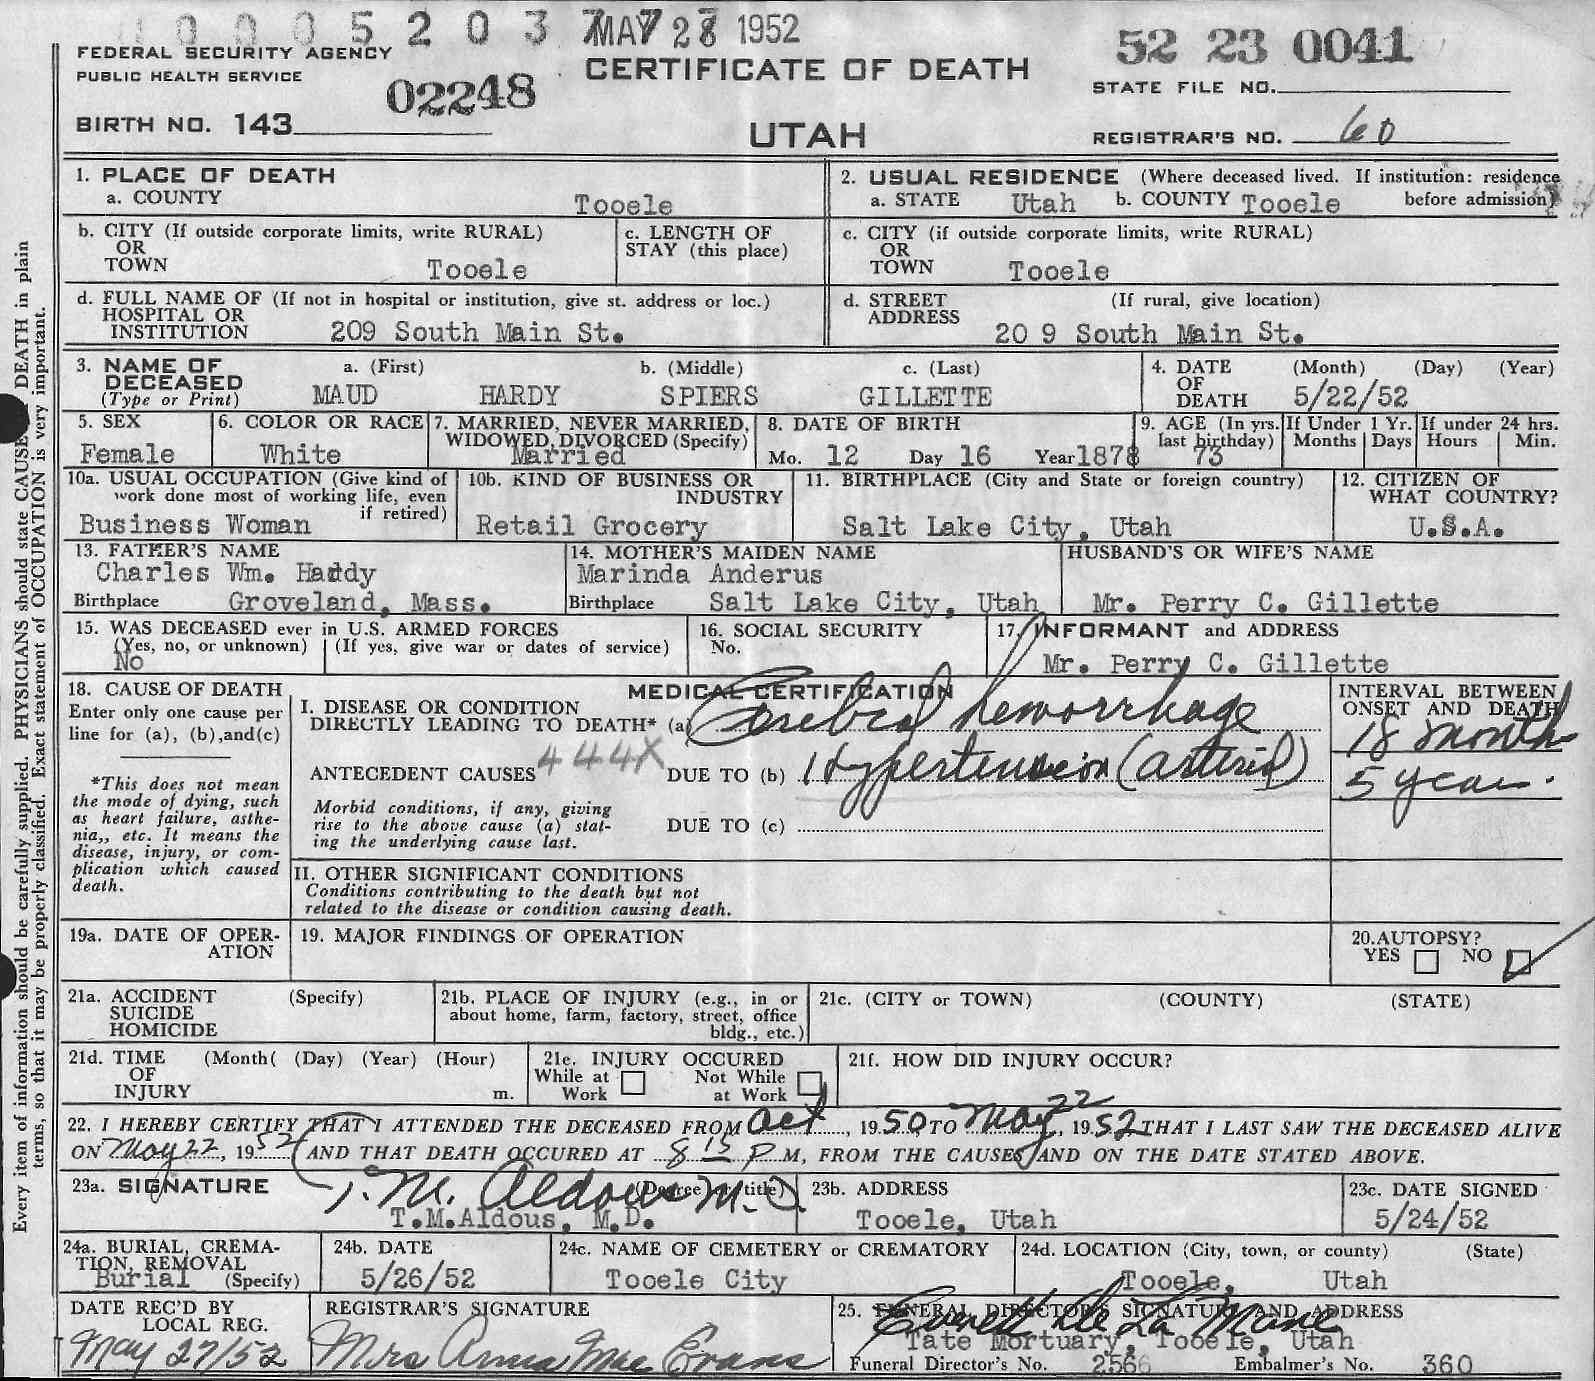 0005203 MAY 28 1952
52 23 0041
FEDERAL SECURITY AGENCY
PUBLIC HEALTH SERVICE
02248
CERTIFICATE OF DEATH
STATE FILE NO.
BIRTH NO. 143
UTAH
REGISTRAR'S NO. 60
1. PLACE OF DEATH
a. COUNTY Tooele
2. USUAL RESIDENCE (Where deceased lived. If institution: residence before admission)
a. STATE Utah b. COUNTY Tooele
b. CITY (If outside corporate limits, write RURAL)
OR
TOWN Tooele
c. LENGTH OF
STAY (this place)
c. CITY (if outside corporate limits, write RURAL)
OR
TOWN Tooele
d. FULL NAME OF (If not in hospital or institution, give st. address or loc.)
HOSPITAL OR
INSTITUTION 209 South Main St.
d. STREET (If rural, give location)
ADDRESS
20 9 South Main St.
3. NAME OF DECEASED
(Type or Print)
a. (First) b. (Middle) c. (Last)
MAUD HARDY SPIERS GILLETTE
4. DATE OF DEATH (Month) (Day) (Year)
5/22/52
5. SEX
Female
6. COLOR OR RACE
White
7. MARRIED, NEVER MARRIED,
WIDOWED, DIVORCED (Specify)
Married
8. DATE OF BIRTH
Mo. 12 Day 16 Year 1878
9. AGE (In yrs. last birthday)
73
If Under 1 Yr.
Months Days
If under 24 hrs.
Hours Min.
10a. USUAL OCCUPATION (Give kind of
work done most of working life, even
if retired)
Business Woman
10b. KIND OF BUSINESS OR
INDUSTRY
Retail Grocery
11. BIRTHPLACE (City and State or foreign country)
Salt Lake City, Utah
12. CITIZEN OF
WHAT COUNTRY?
U.S.A.
13. FATHER'S NAME
Charles Wm. Hardy
Birthplace Groveland, Mass.
14. MOTHER'S MAIDEN NAME
Marinda Anderus
Birthplace Salt Lake City, Utah
HUSBAND'S OR WIFE'S NAME
Mr. Perry C. Gillette
15. WAS DECEASED ever in U.S. ARMED FORCES
(Yes, no, or unknown) (If yes, give war or dates of service)
No
16. SOCIAL SECURITY
No.
17. INFORMANT and ADDRESS
Mr. Perry C. Gillette
18. CAUSE OF DEATH
Enter only one cause per
line for (a), (b),and(c)
*This does not mean
the mode of dying, such
as heart failure, asthe-
nia,, etc. It means the
disease, injury, or com-
plication which caused
death.
MEDICAL CERTIFICATION
I. DISEASE OR CONDITION
DIRECTLY LEADING TO DEATH* (a) Cerebral hemorrhage
ANTECEDENT CAUSES 444X DUE TO (b) Hypertension (arterial)
Morbid conditions, if any, giving
rise to the above cause (a) stat-
ing the underlying cause last.
DUE TO (c)
INTERVAL BETWEEN
ONSET AND DEATH
18 months
5 years.
II. OTHER SIGNIFICANT CONDITIONS
Conditions contributing to the death but not
related to the disease or condition causing death.
19a. DATE OF OPER-
ATION
19. MAJOR FINDINGS OF OPERATION
20.AUTOPSY?
YES NO
21a. ACCIDENT (Specify)
SUICIDE
HOMICIDE
21b. PLACE OF INJURY (e.g., in or
about home, farm, factory, street, office
bldg., etc.)
21c. (CITY or TOWN) (COUNTY) (STATE)
21d. TIME (Month( (Day) (Year) (Hour)
OF
INJURY m.
21e. INJURY OCCURED
While at Work Not While at Work
21f. HOW DID INJURY OCCUR?
22. I HEREBY CERTIFY THAT I ATTENDED THE DECEASED FROM Oct, 1950, TO May 22, 1952 THAT I LAST SAW THE DECEASED ALIVE
ON May 22, 1952 AND THAT DEATH OCCURED AT 8 15 P M, FROM THE CAUSES AND ON THE DATE STATED ABOVE.
23a. SIGNATURE (Degree or title)
T. M. Aldous M.D.
T.M.Aldous, M.D.
23b. ADDRESS
Tooele, Utah
23c. DATE SIGNED
5/24/52
24a. BURIAL, CREMA-
TION, REMOVAL
Burial (Specify)
24b. DATE
5/26/52
24c. NAME OF CEMETERY or CREMATORY
Tooele City
24d. LOCATION (City, town, or county) (State)
Tooele, Utah
DATE REC'D BY
LOCAL REG.
May 27/52
REGISTRAR'S SIGNATURE
Mrs Anna Mae Evans
25. FUNERAL DIRECTOR'S SIGNATURE AND ADDRESS
Everett De La Mare
Tate Mortuary, Tooele, Utah
Funeral Director's No. 2566 Embalmer's No. 360
Every item of information should be carefully supplied. PHYSICIANS should state CAUSE DEATH in plain
terms, so that it may be properly classified. Exact statement of OCCUPATION is very important.